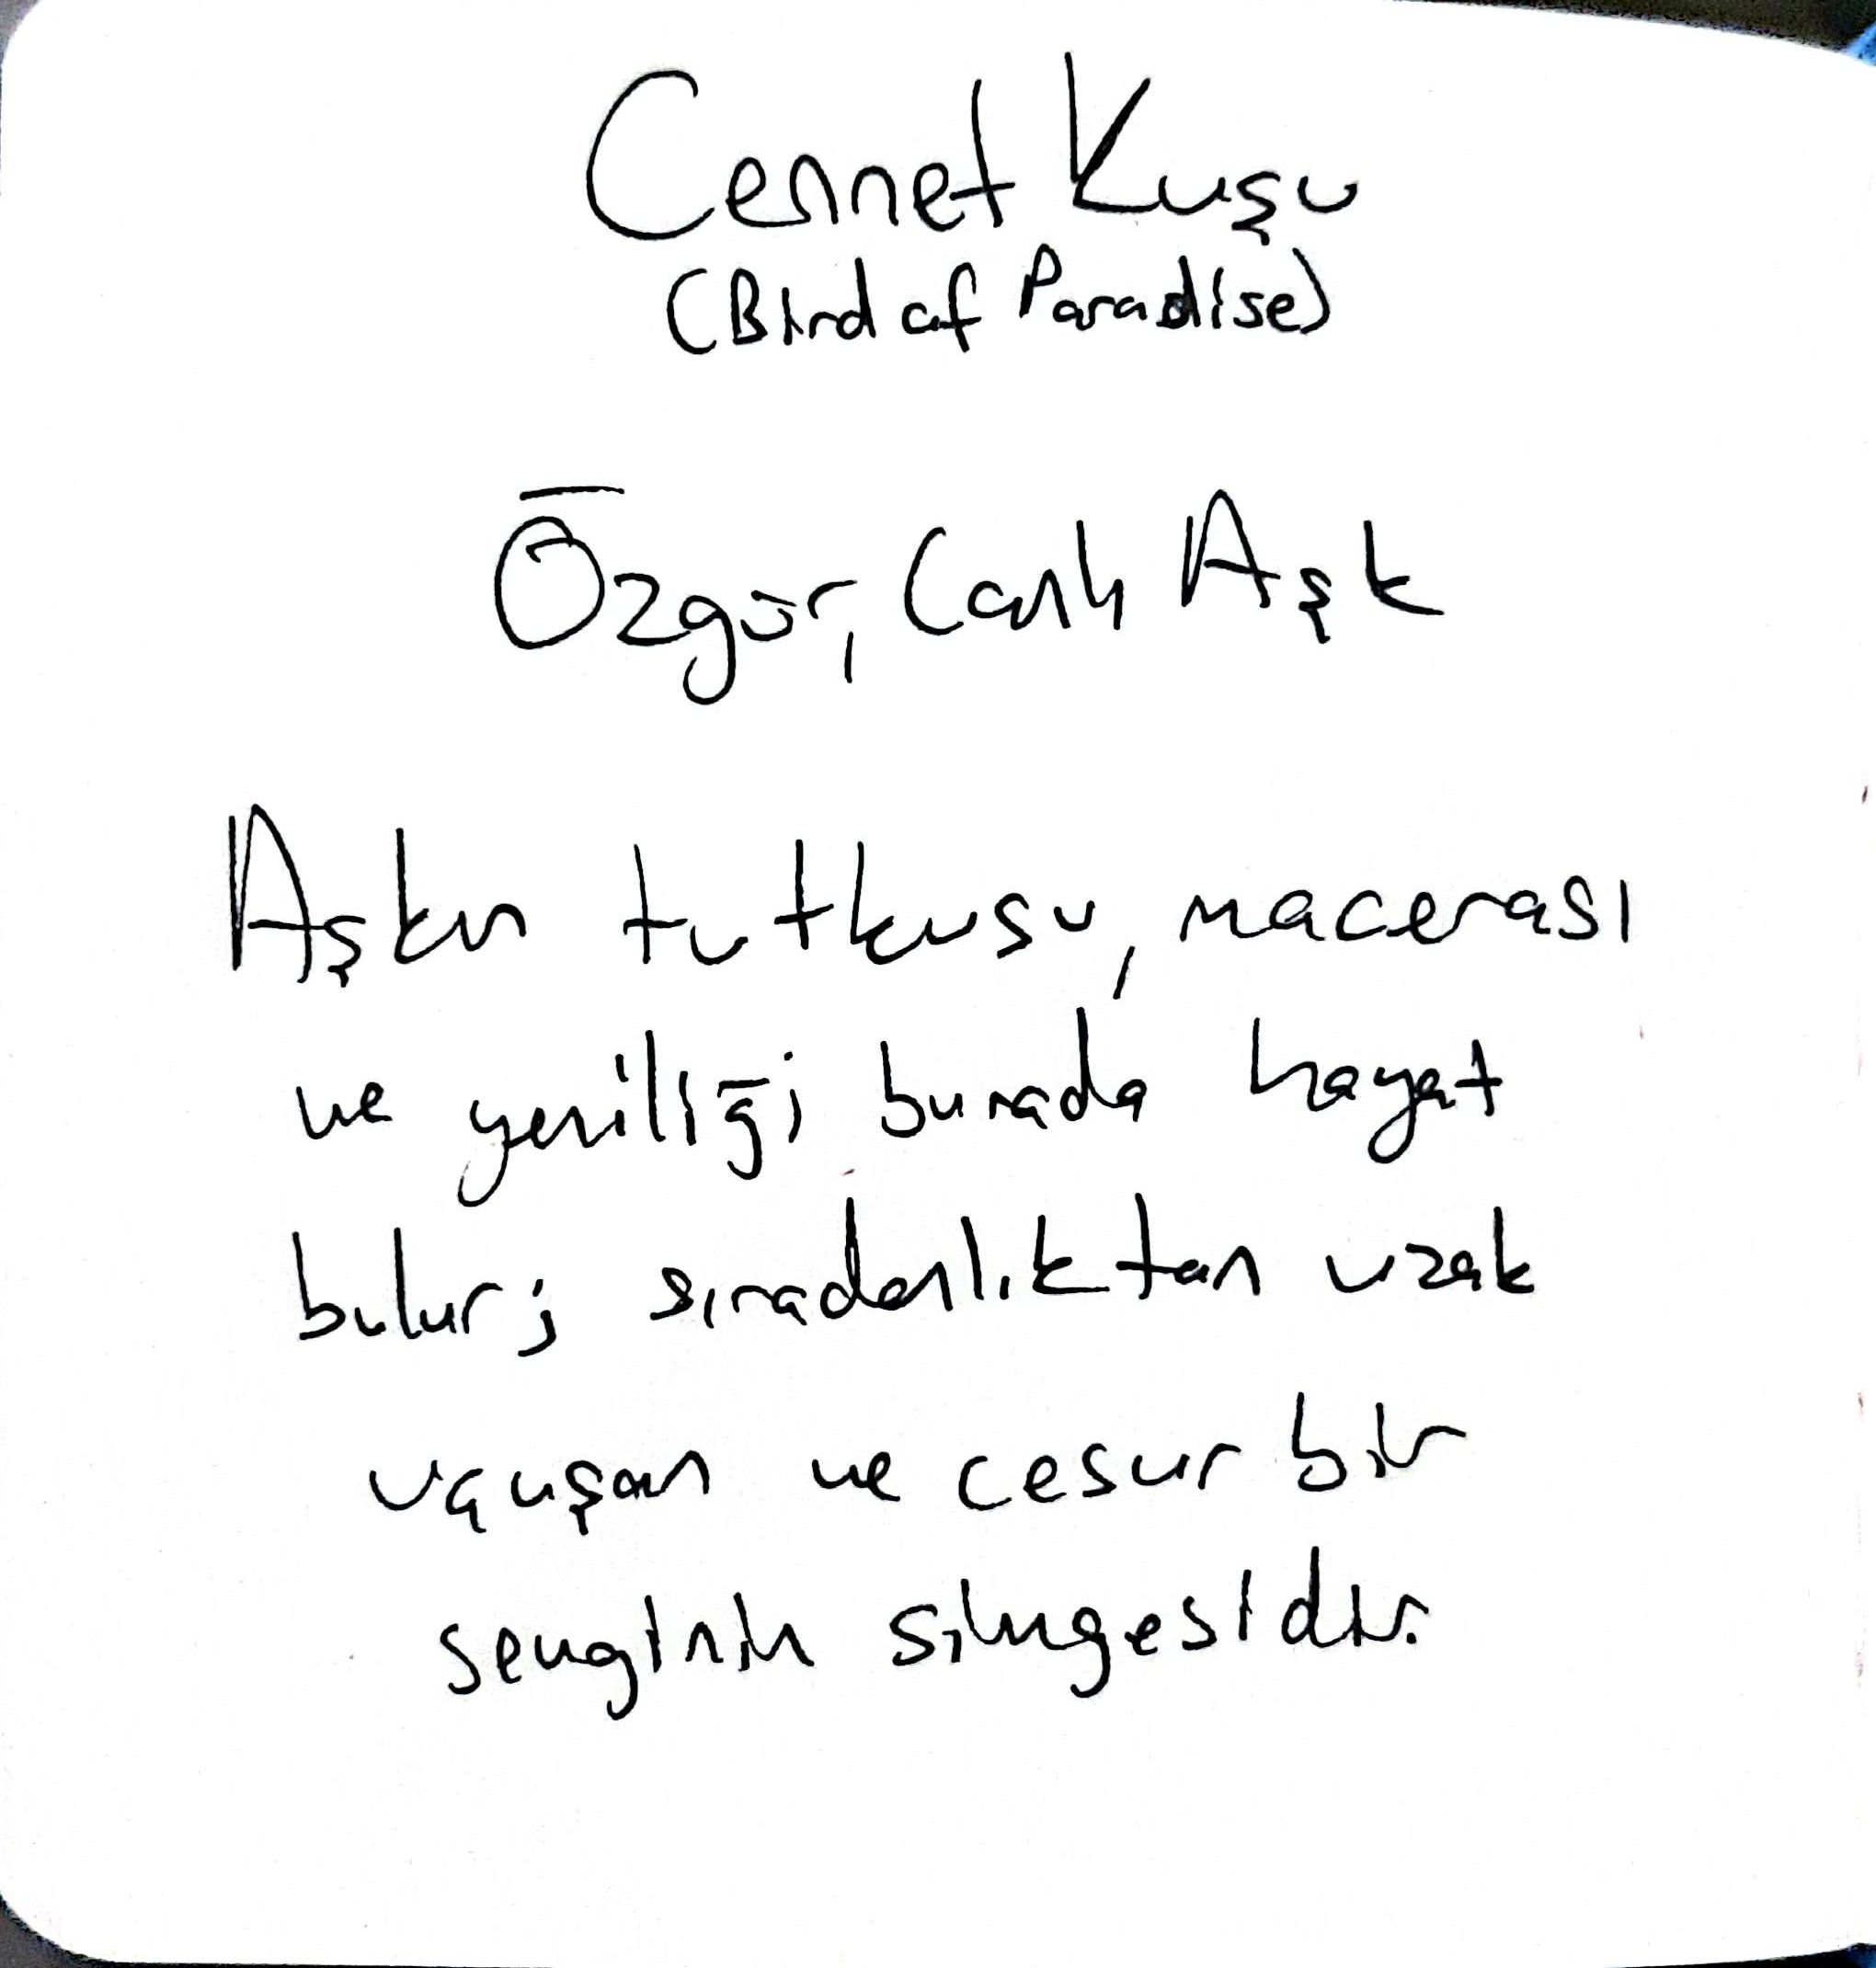 Cennet Kuşu
(Bird of Paradise)
Özgür, Canlı Aşk
Aşkın tutkusu, macerası
ve yeniliği burada hayat
bulur; sıradanlıktan uzak
uçuşan ve cesur bir
sevginin simgesidir.